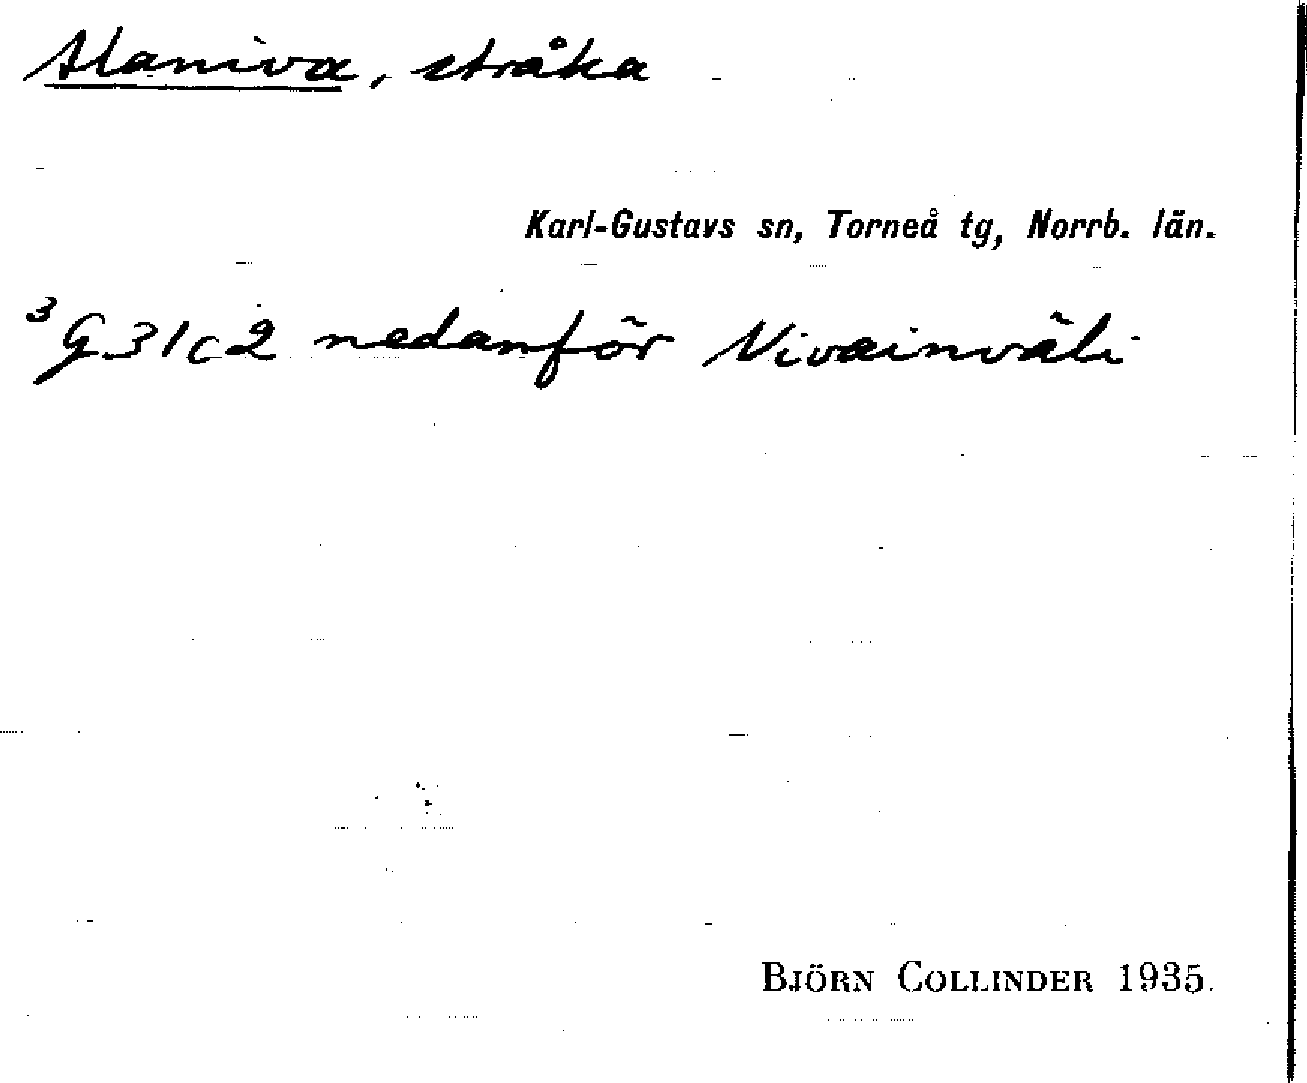 Alaniva, stråka
Karl-Gustavs sn, Torneå tg, Norrb. län.
³G31c2 nedanför Nivainväli
BJÖRN COLLINDER 1935.